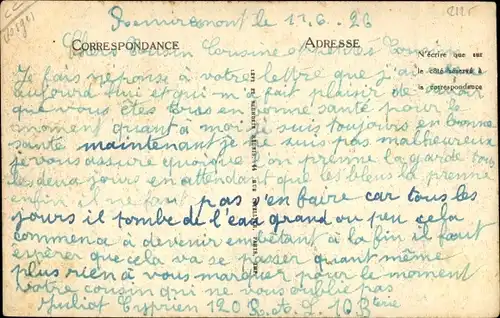 Remiremont le 11.6.26
Chers Cousin Cousine et
CORRESPONDANCE
ADRESSE
N'écrire que sur
le côté réservé à
la correspondance
Je fais réponse à votre lettre que j'ai
aujourd'hui et qui m'a fait plaisir de savoir
que vous êtes tous en bonne santé pour le
moment quant à moi je suis toujours en bonne
santé maintenant je ne suis pas malheureux
je vous assure quoique l'on prenne la garde tous
les deux jours en attendant que les bleus la prenne
enfin il ne faut pas s'en faire car tous les
jours il tombe de l'eau grand ou peu cela
commence à devenir embêtant à la fin il faut
espérer que cela va se passer quant même
plus rien à vous marquer pour le moment
votre cousin qui ne vous oublie pas
Cyprien 120 R.A.L 10 Bterie